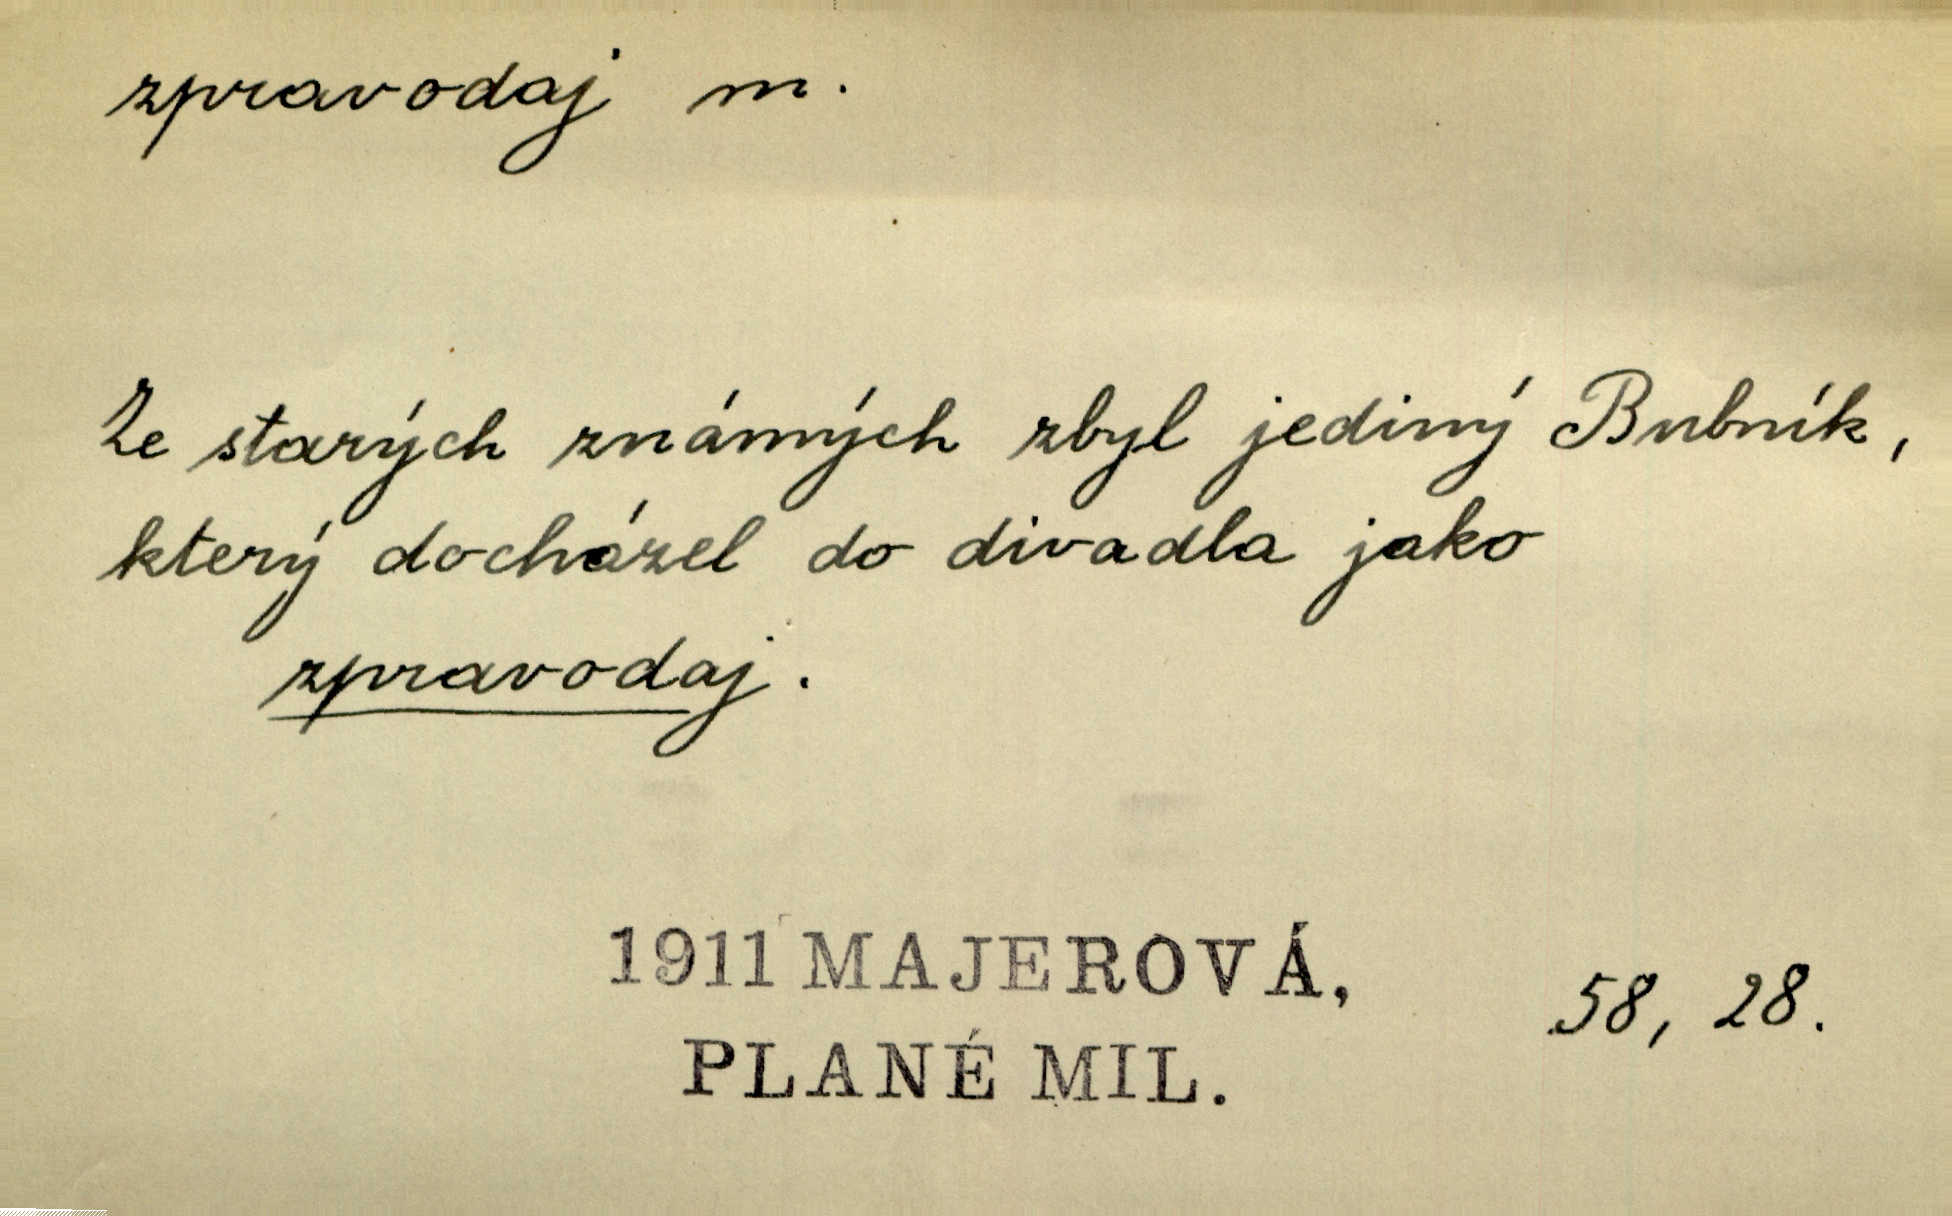 zpravodaj m.
Ze starých známých zbyl jediný Bubník,
který docházel do divadla jako
zpravodaj.
1911 MAJEROVÁ,
PLANÉ MIL.
58, 28.